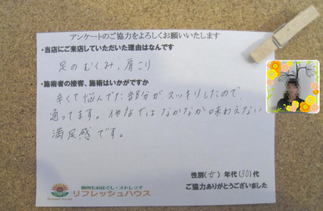 アンケートのご協力をよろしくお願いいたします
・当店にご来店していただいた理由はなんですか
足のむくみ、肩こり
・施術者の接客、施術はいかがですか
辛くて悩んでた部分がスッキリしたので
通ってます。他店ではなかなか味わえない
満足感です。
性別(女) 年代(50)代
ご協力ありがとうございました
リフレッシュハウス